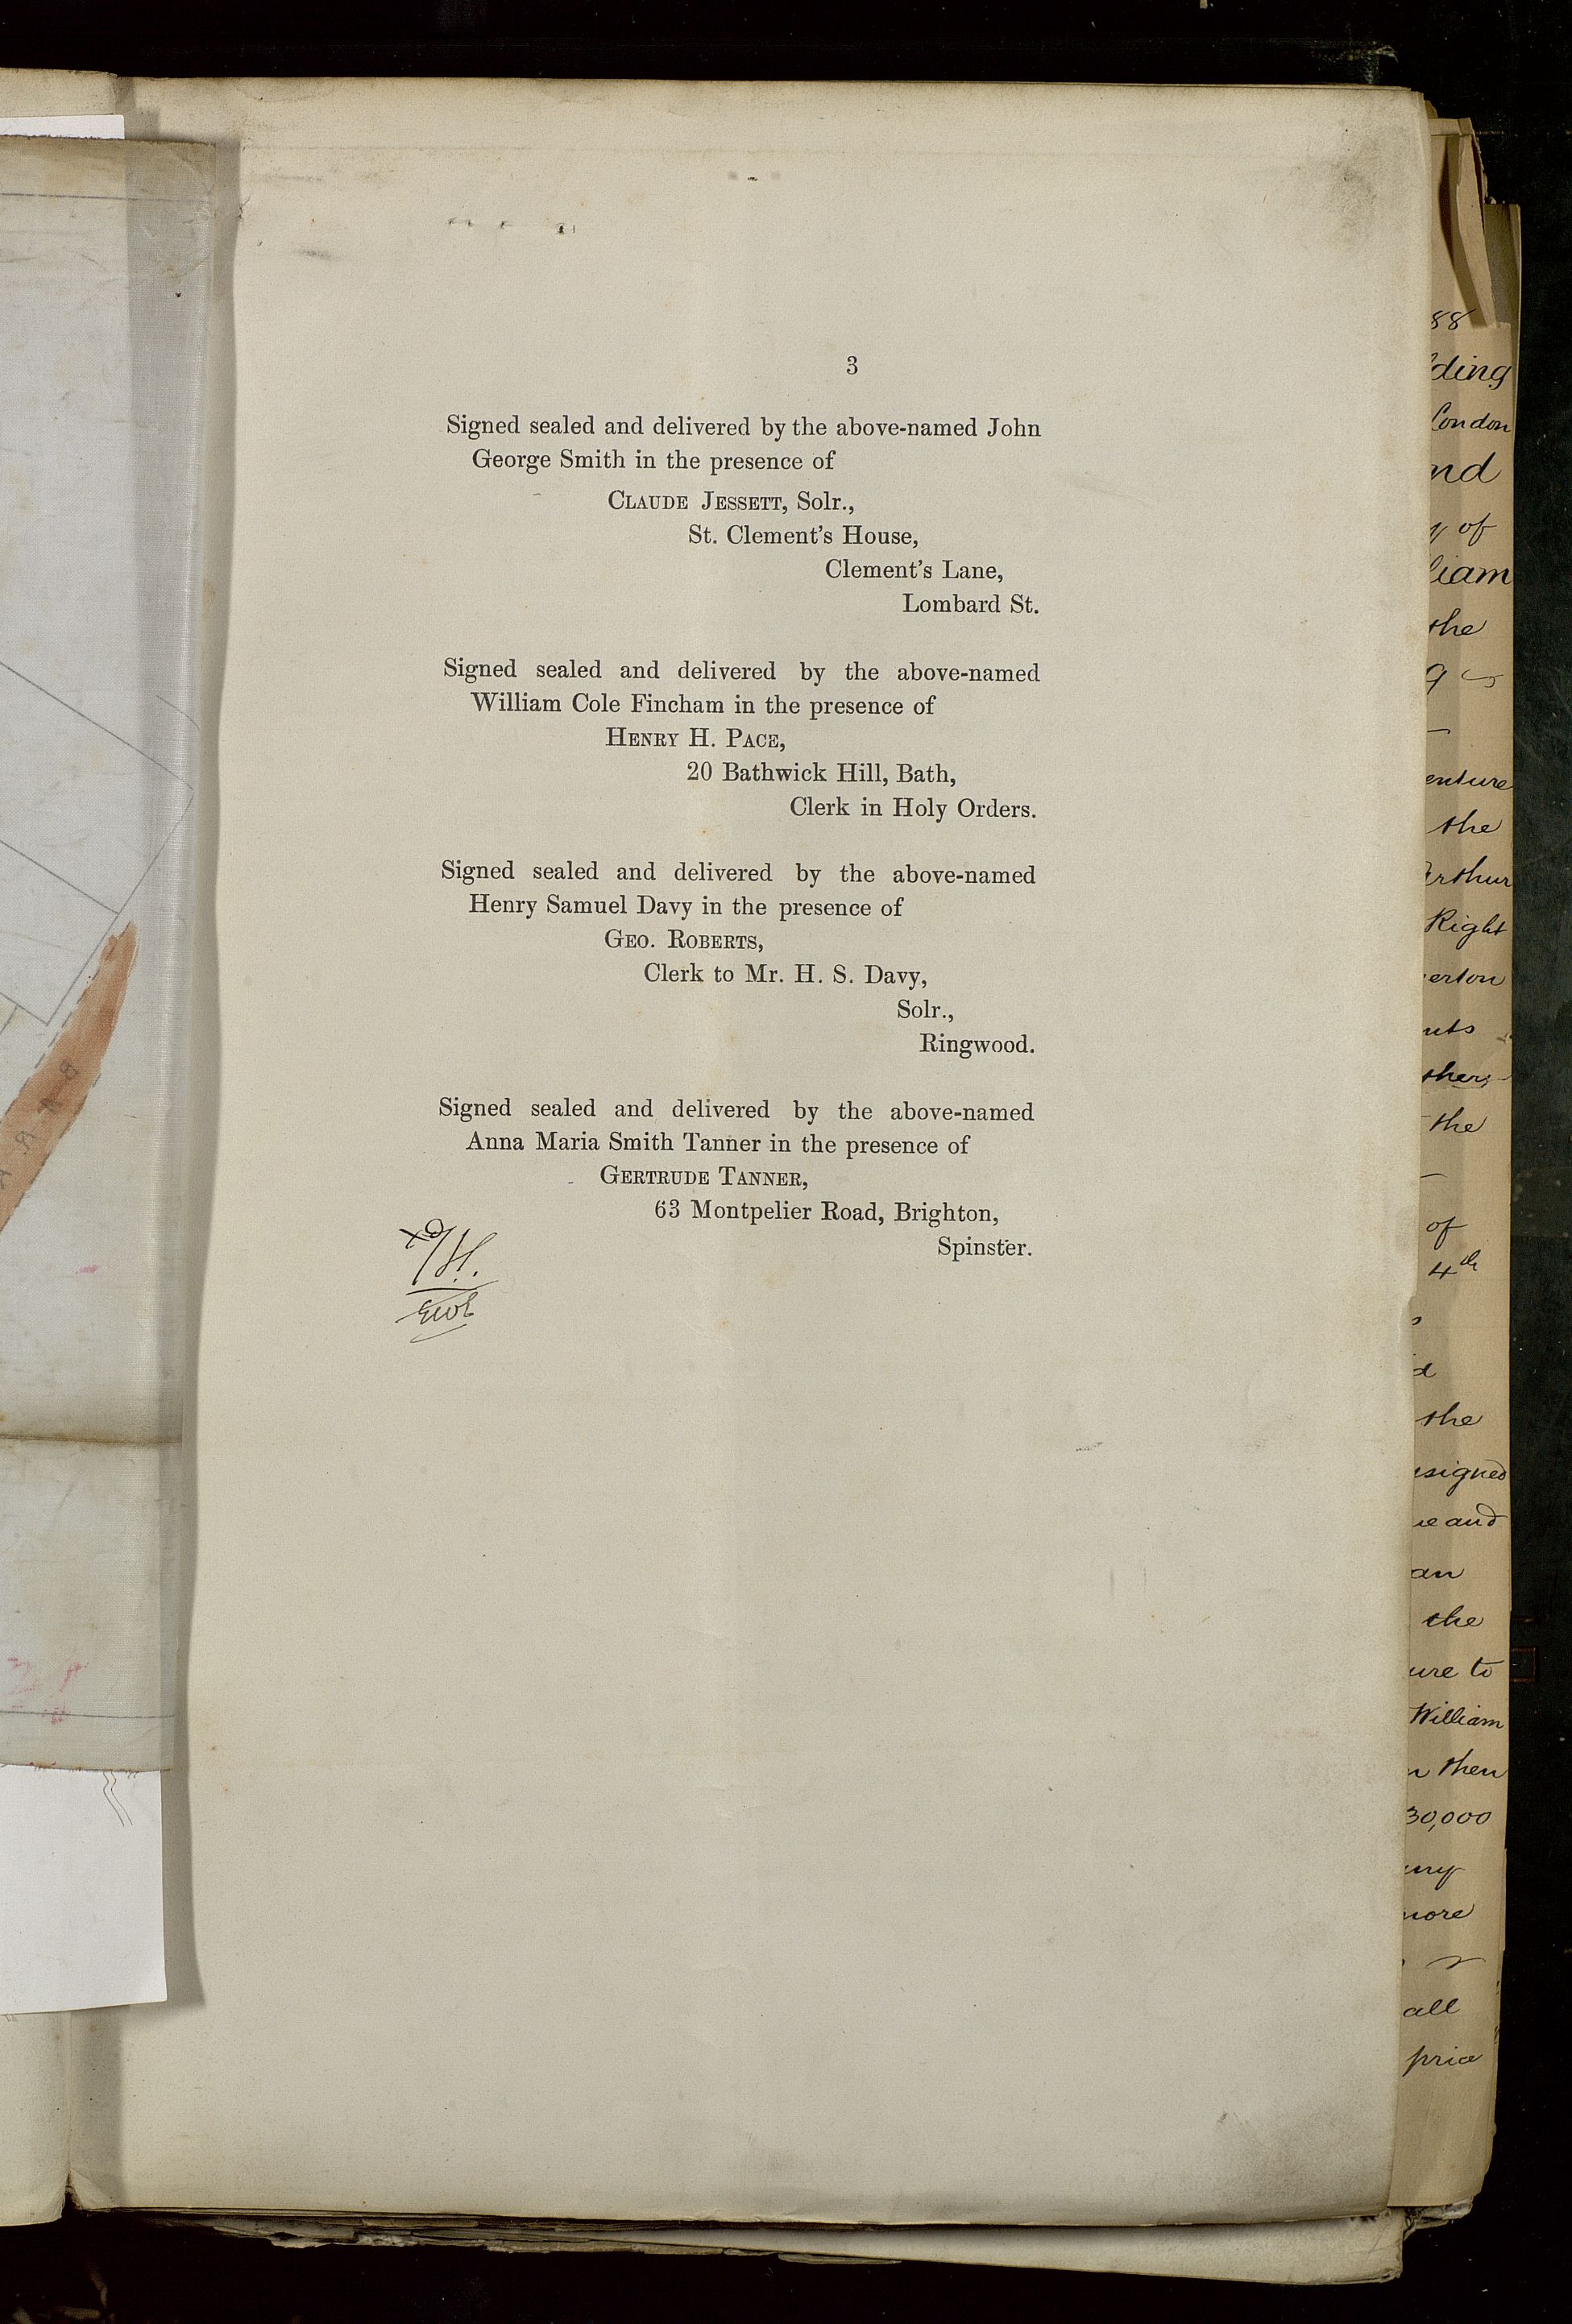 3
Signed sealed and delivered by the above-named John
George Smith in the presence of
CLAUDE JESSETT, Solr.,
St. Clement's House,
Clement's Lane,
Lombard St.
Signed sealed and delivered by the above-named
William Cole Fincham in the presence of
HENRY H. PACE,
20 Bathwick Hill, Bath,
Clerk in Holy Orders.
Signed sealed and delivered by the above-named
Henry Samuel Davy in the presence of
GEO. ROBERTS,
Clerk to Mr. H. S. Davy,
Solr.,
Ringwood.
Signed sealed and delivered by the above-named
Anna Maria Smith Tanner in the presence of
GERTRUDE TANNER,
63 Montpelier Road, Brighton,
Spinster.
88
London
of
the
the
Right
the
of
4th
the
and
the
to
William
then
30,000
all